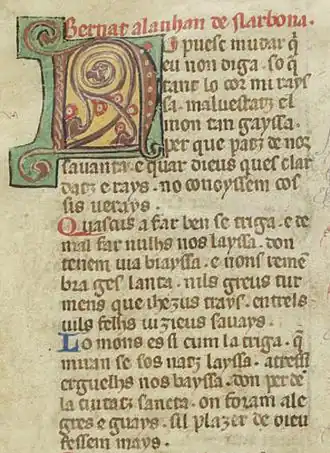 Bernat alanhan de Narbona.
No puesc mudar q̄
eu non diga. so q̄
tant lo cor mi rays
sa. maluestatz el
mon tan gayssa.
per que patz de nos
sauanta. e quar dieus ques clar
datz e rays. no conoyssem cos
sis uerays.
Quascus a far ben se triga. e de
mal far nulhs nos layssa. don
tenem uia biayssa. e nons remē
bra ges lanta. nils greus tur
mens que ihezus trays. entrels
uils felhs iuzieus sauays.
Lo mons es si cum la triga. q̄
muan se sos natz layssa. atressi
erguelhs nos bayssa. don perdē
la ciutatz sancta. on foram ale
gres e guays. sil plazer de dieu
fessem mays.